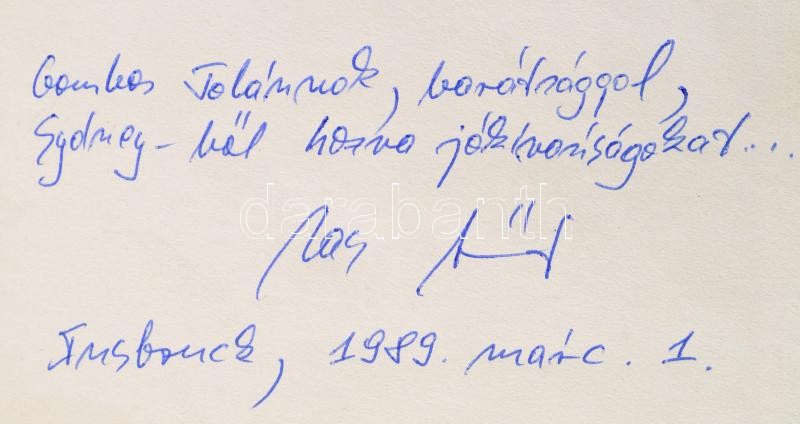 Gombos Jolánnak, barátsággal,
Sydney-ből hozva jókívánságokat...
darabanth
Innsbruck, 1989. márc. 1.